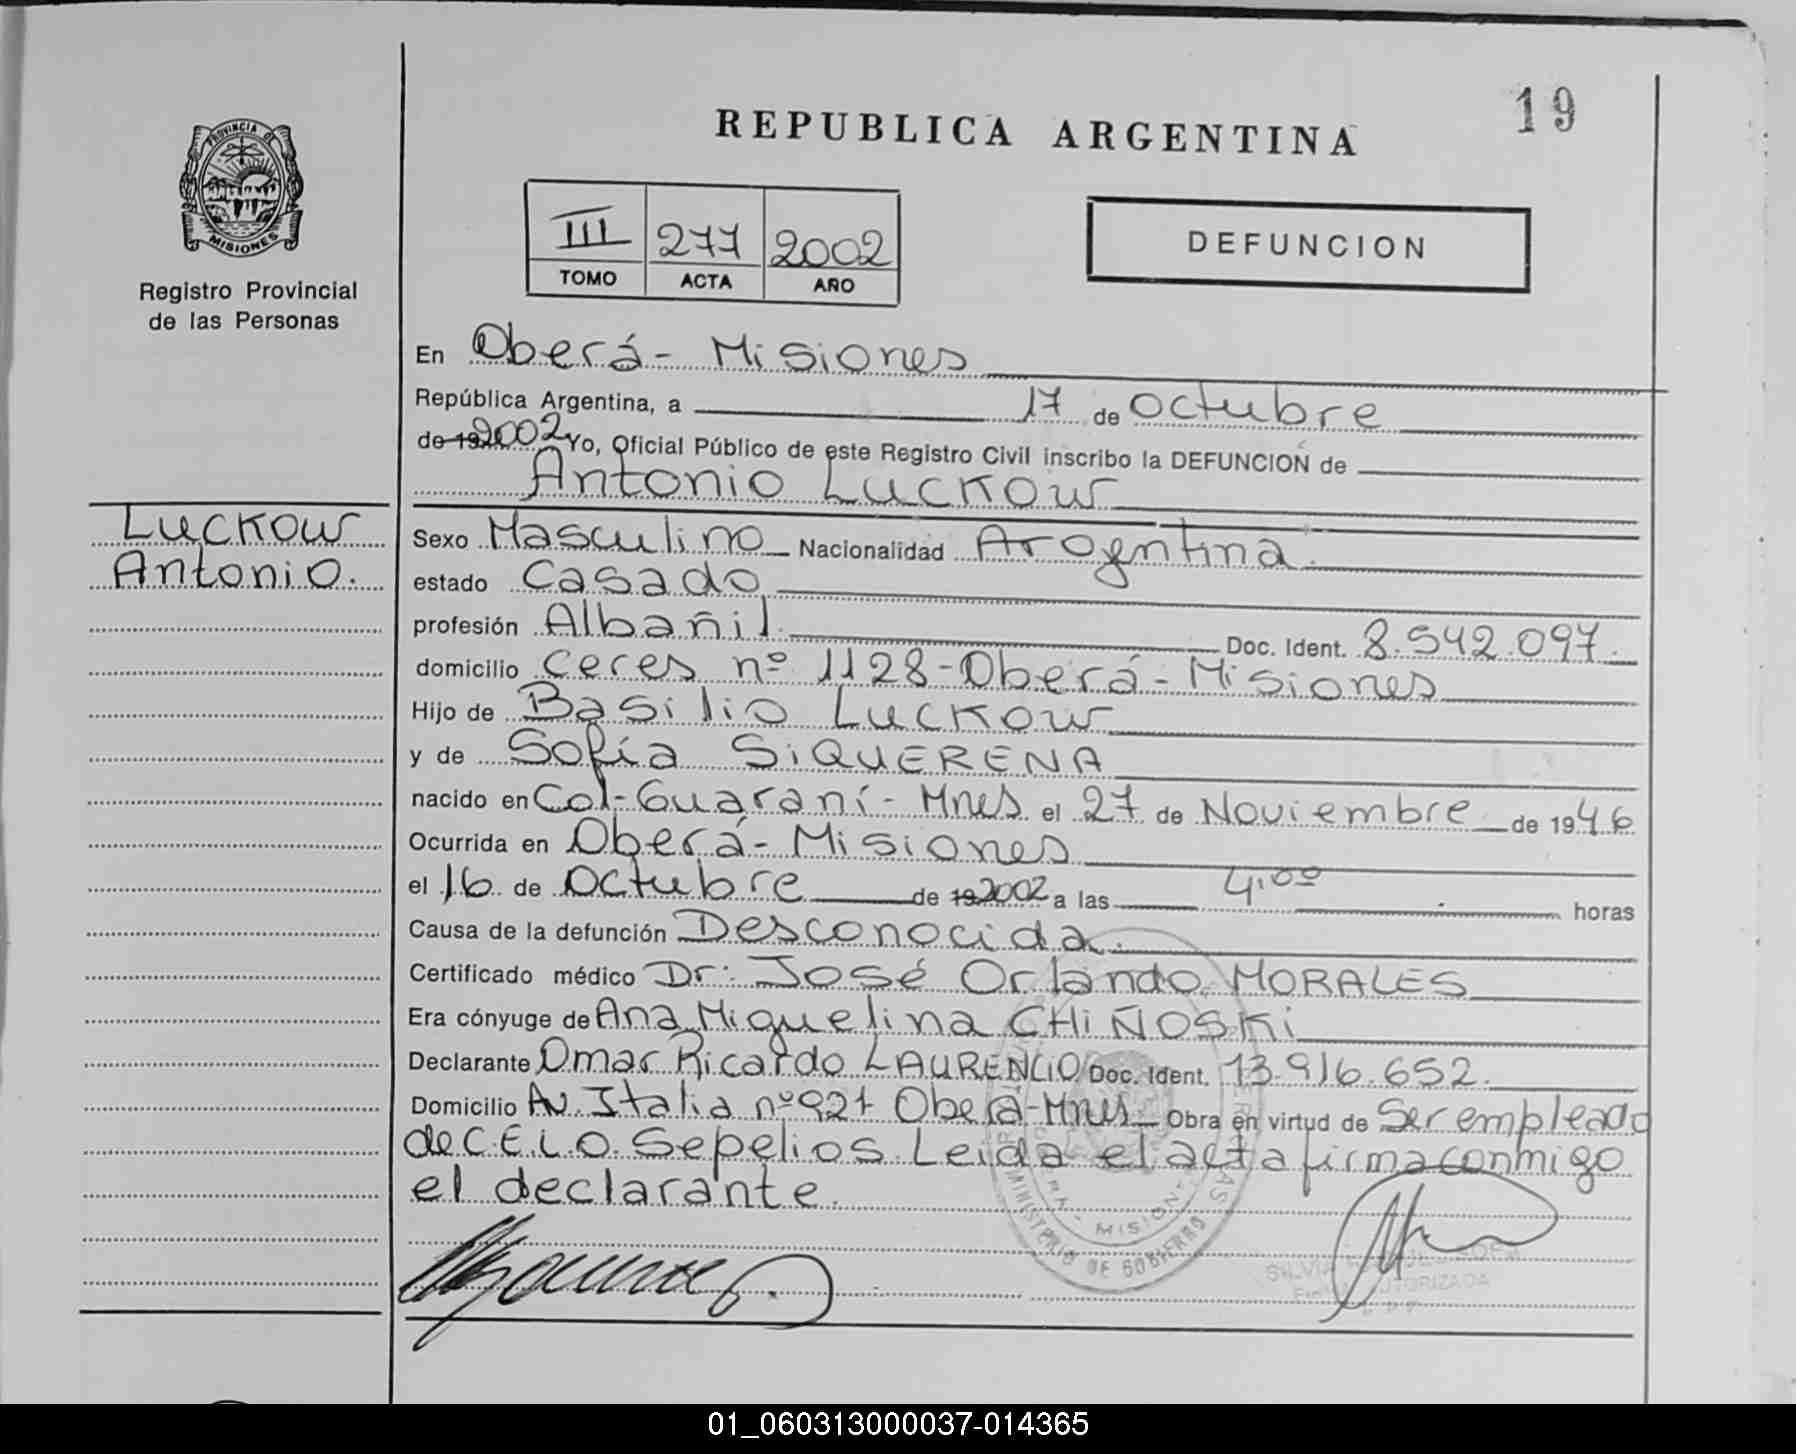 REPUBLICA ARGENTINA
19
PROVINCIA DE
MISIONES
Registro Provincial
de las Personas
III 277 2002
TOMO ACTA AÑO
DEFUNCION
En Oberá - Misiones
República Argentina, a 17 de Octubre
de 19 2002 Yo, Oficial Público de este Registro Civil inscribo la DEFUNCION de
Antonio Luckow
Luckow
Antonio.
Sexo Masculino Nacionalidad Argentina.
estado Casado
profesión Albañil. Doc. Ident. 8.542.097.
domicilio Ceres nº 1128 - Oberá - Misiones
Hijo de Basilio Luckow
y de Sofía SiQUERENA
nacido en Col - Guaraní - Mnes el 27 de Noviembre de 1946
Ocurrida en Oberá - Misiones
el 16 de Octubre de 19 2002 a las 4,00 horas
Causa de la defunción Desconocida.
Certificado médico Dr: José Orlando MORALES
Era cónyuge de Ana Miguelina CHiÑOSKi
Declarante Omar Ricardo LAURENCIO Doc. Ident. 13.916.652.
Domicilio Av. Italia nº 921 Oberá - Mnes Obra en virtud de Ser empleado
de C.E.L.O. Sepelios. Leida el acta firma conmigo
el declarante.
MINISTERIO DE GOBIERNO
SILVIA
AUTORIZADA
01_060313000037-014365